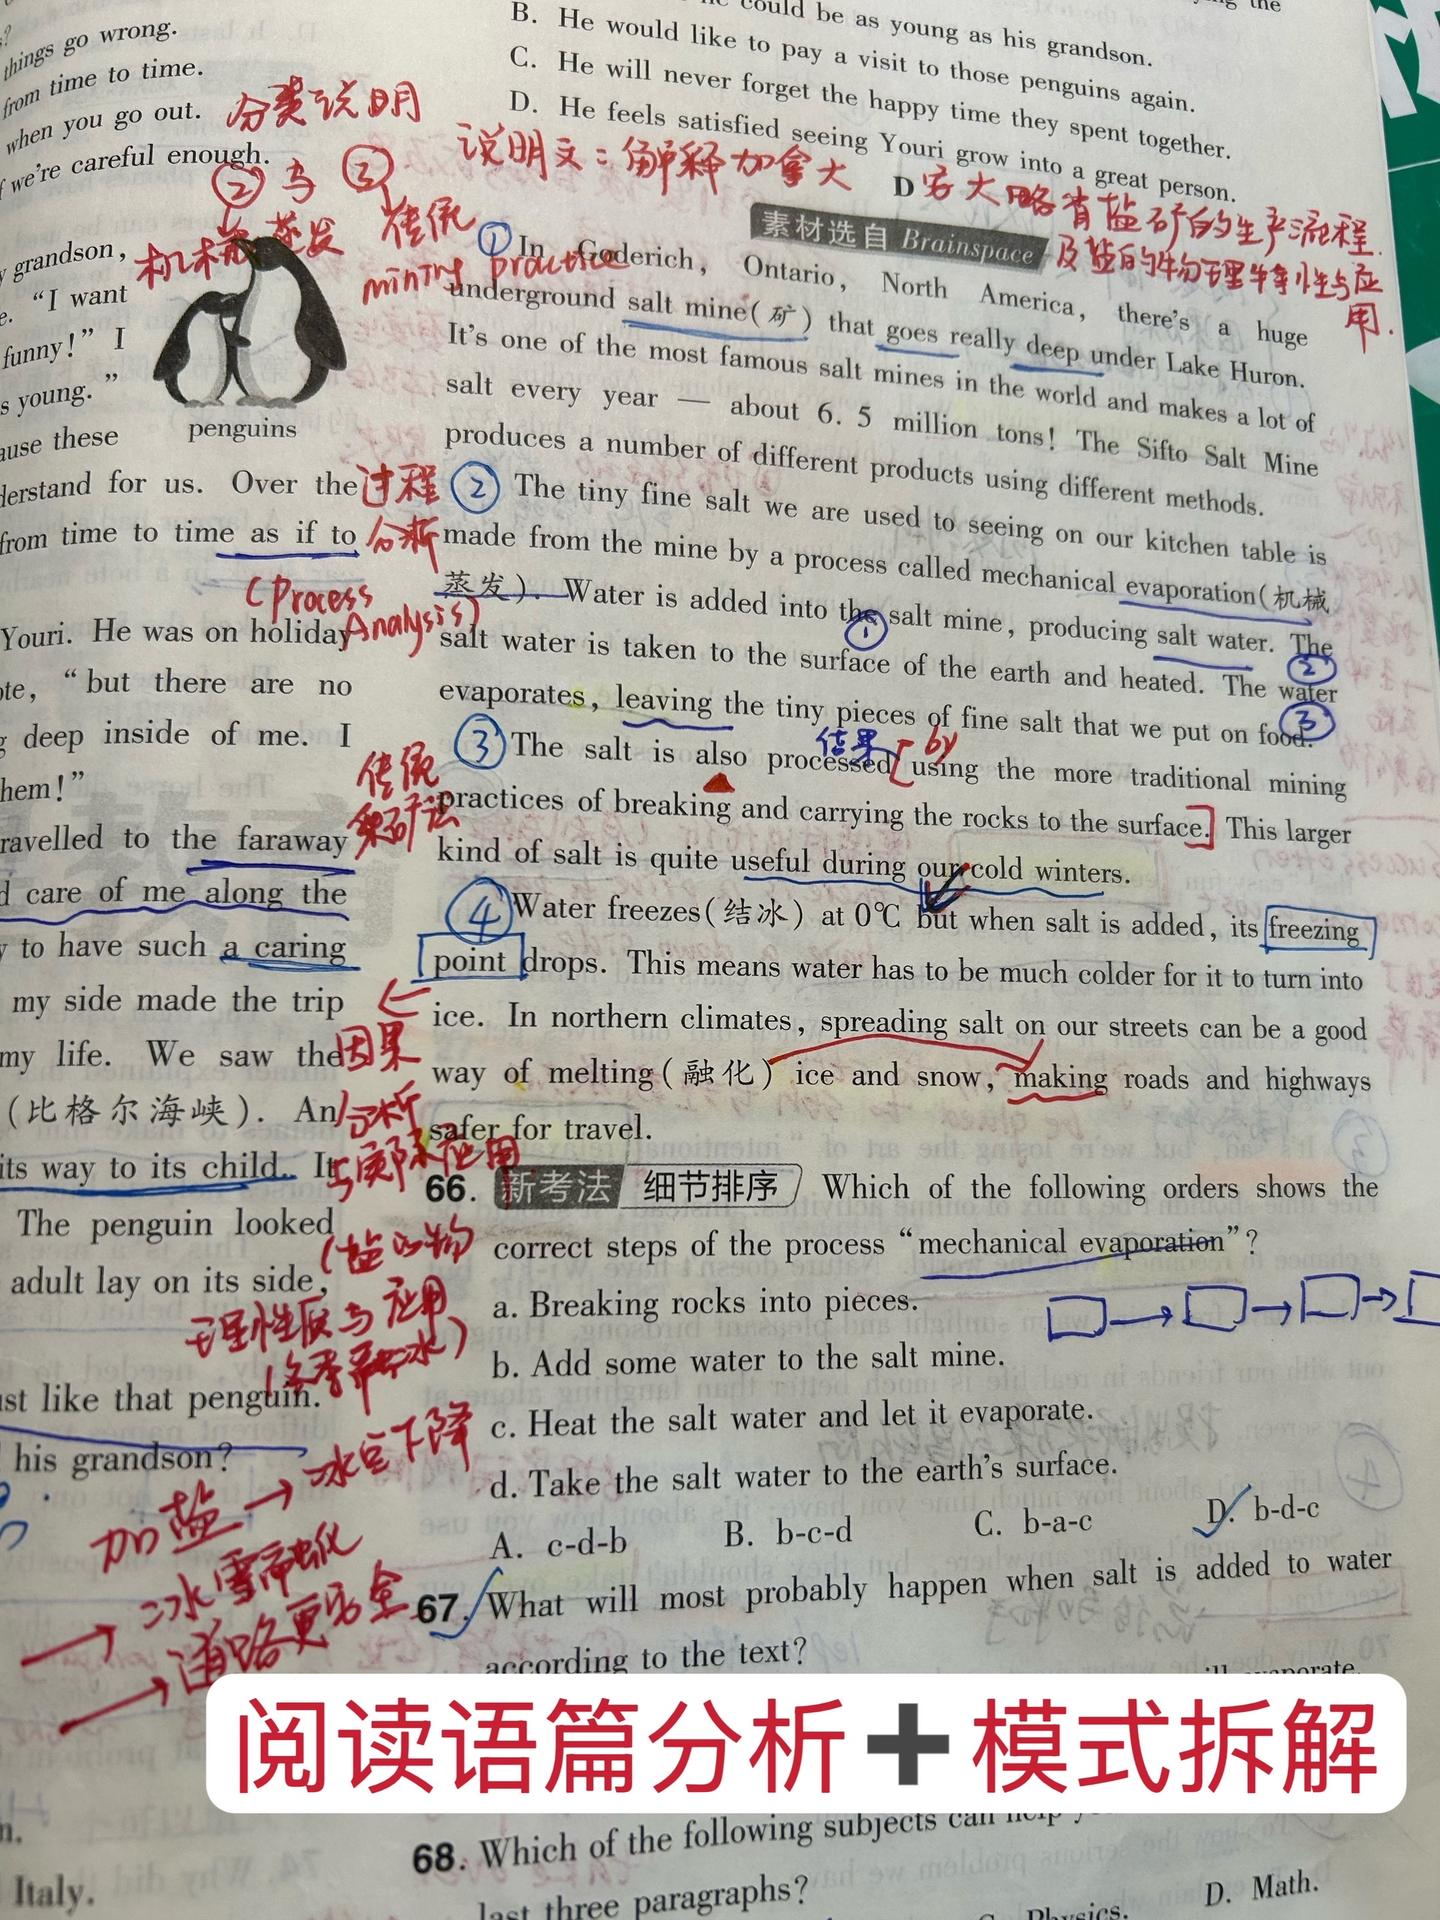 things go wrong.
from time to time.
when you go out.
f we're careful enough.
分类说明
②与③
机械蒸发 传统
mining practice
grandson,
"I want
funny!" I
s young."
ause these
penguins
derstand for us. Over the
from time to time as if to
Youri. He was on holiday
ote, "but there are no
g deep inside of me. I
hem!"
ravelled to the faraway
d care of me along the
y to have such a caring
my side made the trip
my life. We saw the
(比格尔海峡). An
its way to its child. It
The penguin looked
adult lay on its side,
ust like that penguin.
his grandson?
Italy.
过程
分析
(Process
Analysis)
传统
采矿法
因果
分析
与实际应用
(盐的物
理性质与应用
加盐→冰点下降
→冰雪融化
→道路更安全
could be as young as his grandson.
B. He would like to pay a visit to those penguins again.
C. He will never forget the happy time they spent together.
D. He feels satisfied seeing Youri grow into a great person.
说明文：解释加拿大
D
安大略省盐矿的生产流程
及盐的物理特性与应
用.
素材选自 Brainspace
① In Goderich, Ontario, North America, there's a huge
underground salt mine(矿) that goes really deep under Lake Huron.
It's one of the most famous salt mines in the world and makes a lot of
salt every year — about 6.5 million tons! The Sifto Salt Mine
produces a number of different products using different methods.
② The tiny fine salt we are used to seeing on our kitchen table is
made from the mine by a process called mechanical evaporation(机械
蒸发). Water is added into the salt mine, producing salt water. The
① ②
salt water is taken to the surface of the earth and heated. The water
evaporates, leaving the tiny pieces of fine salt that we put on food.
③
结果 by
③ The salt is also processed [using the more traditional mining
practices of breaking and carrying the rocks to the surface.] This larger
kind of salt is quite useful during our cold winters.
④ Water freezes(结冰) at 0℃ but when salt is added, its freezing
point drops. This means water has to be much colder for it to turn into
ice. In northern climates, spreading salt on our streets can be a good
way of melting(融化) ice and snow, making roads and highways
safer for travel.
66. 新考法 细节排序 Which of the following orders shows the
correct steps of the process "mechanical evaporation"?
a. Breaking rocks into pieces.
b. Add some water to the salt mine.
c. Heat the salt water and let it evaporate.
d. Take the salt water to the earth's surface.
A. c-d-b B. b-c-d C. b-a-c D. b-d-c
67. What will most probably happen when salt is added to water
according to the text?
阅读语篇分析➕模式拆解
68. Which of the following subjects can help
last three paragraphs?
C. Physics. D. Math.